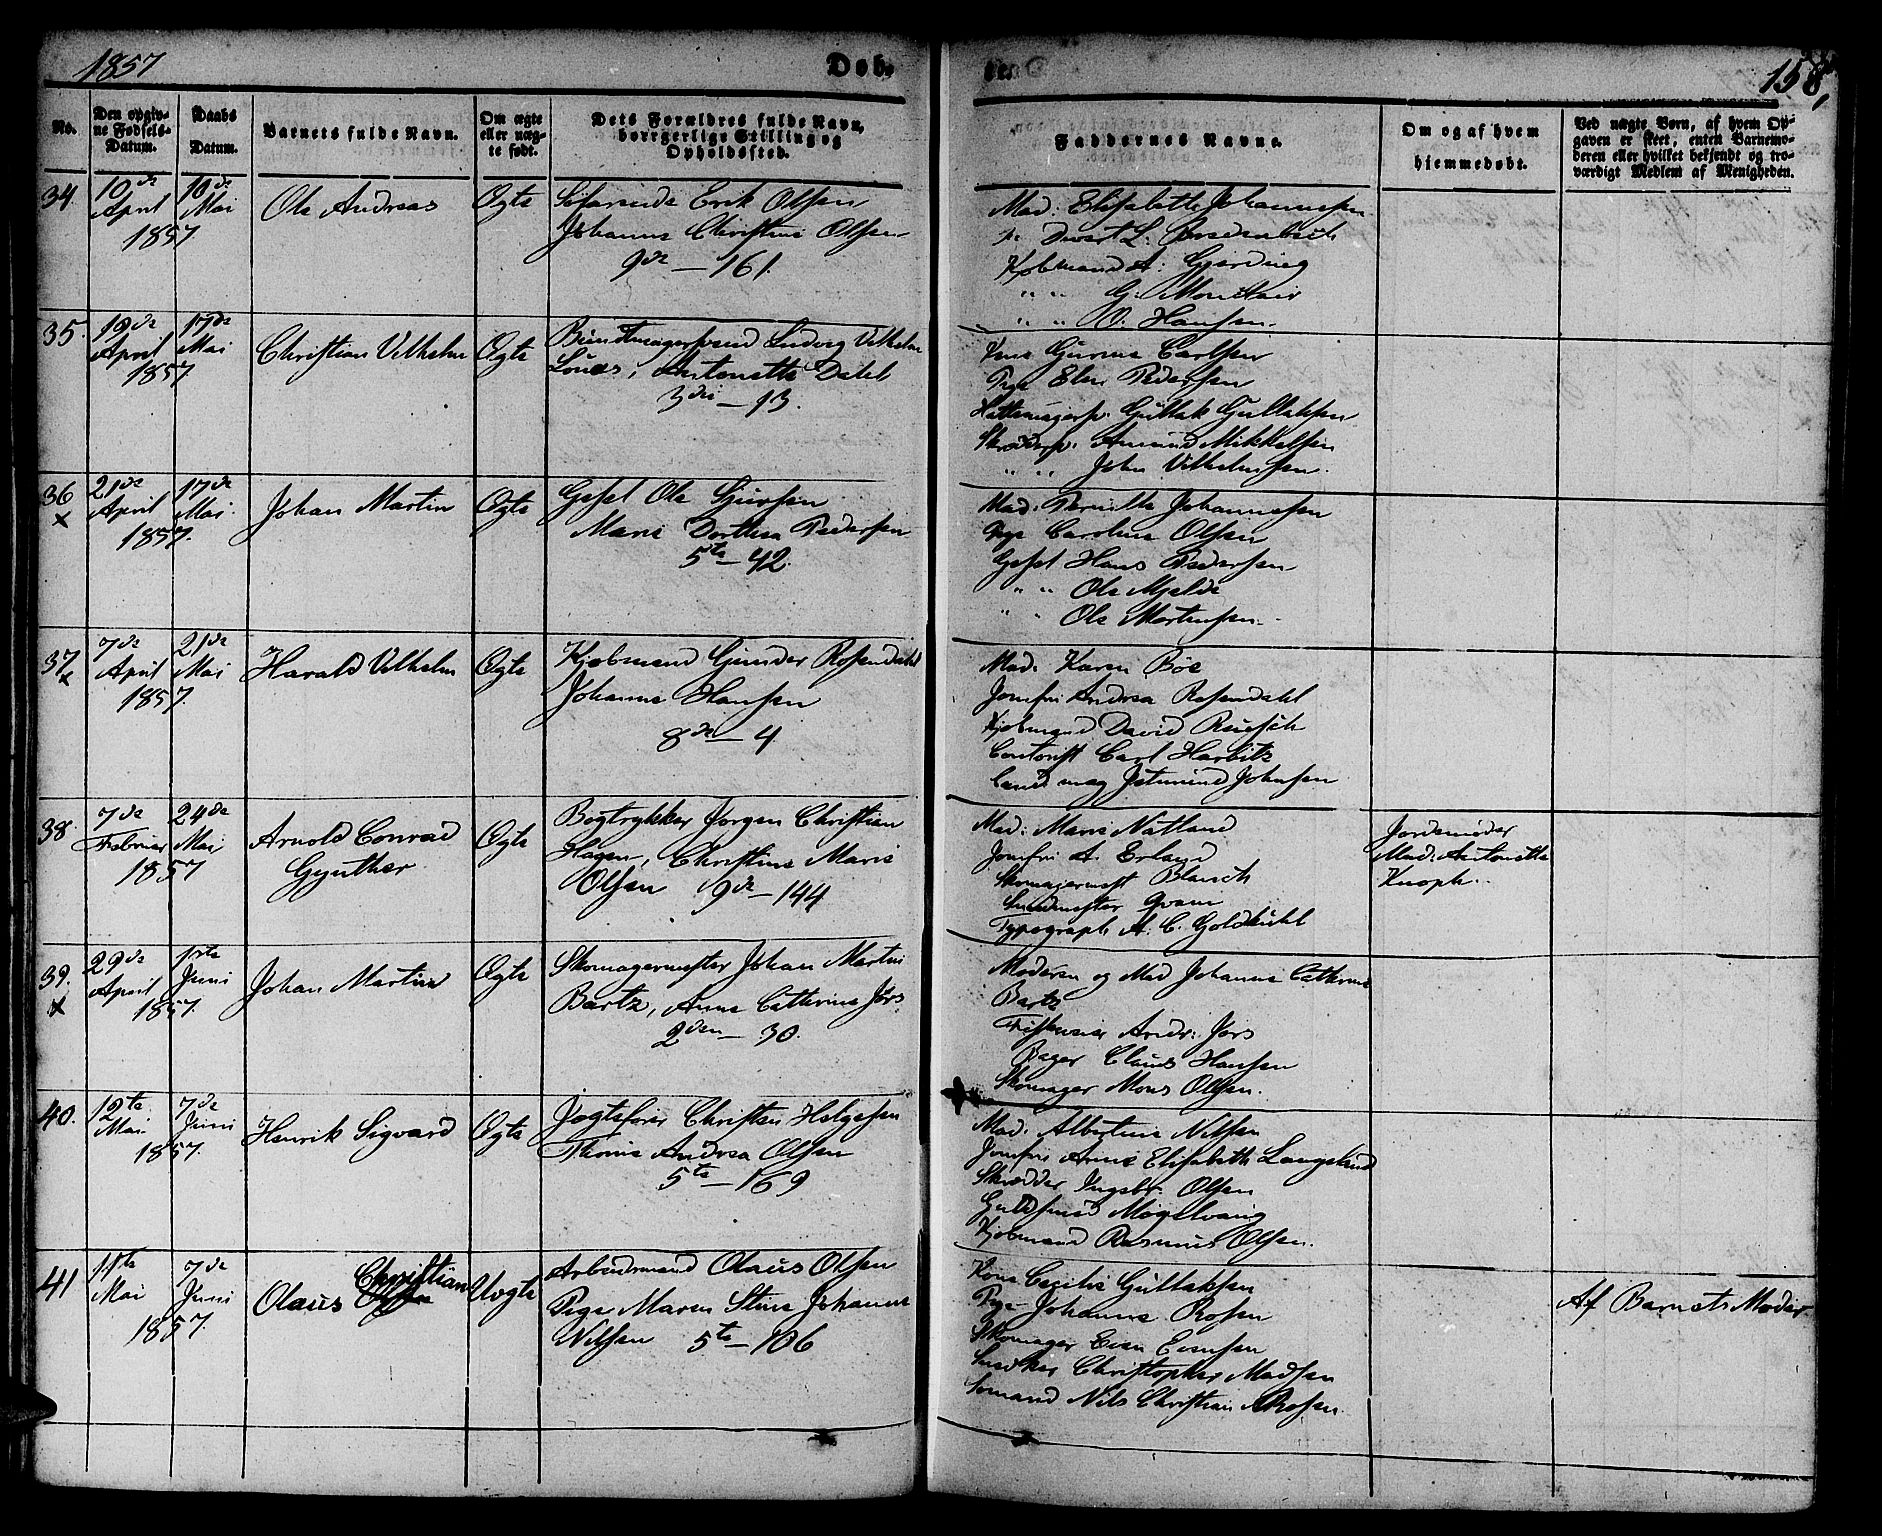 1857
Døb-
te.
158,
No.
Den opgiv-
ne Fødsels-
Datum.
Daabs
Datum.
Barnets fulde Navn.
Om ægte
eller uæg-
te født.
Dets Forældres fulde Navn,
borgerlige Stilling og
Opholdssted.
Faddernes Navne.
Om og af hvem
hjemmedøbt.
Ved uægte Børn, af hvem Op-
gaven er skeet, enten Barnemo-
deren eller hvilket bekjendt og tro-
værdigt Medlem af Menigheden.
34. 10de April 1857 10de Mai Ole Andreas Ægte
Erik Olsen
Johanne Christine Olsen
9de – 161.
Mad: Elisabeth Johannesen
Kjøbmand A: Gjerding
" " G:
" " O. Hansen.
35. 19de April 1857 17de Mai Christian Vilhelm Ægte
Bundtmagersvend Ludvig Vilhelm
Antonette Dahl
3die – 13.
Kone Gurine Carlsen
Pige Elen Pedersen
Hattemagersv. Gullak Gullaksen
Skrædersv. Amund Mikkelsen
" " John Vilhelmsen.
36 x 21de April 1857. 17de Mai. Johan Martin Ægte
Gesel Ole Sjursen
Marie Dorthea Pedersen
5te – 42.
Mad: Pernille Johannesen
Pige Caroline Olsen
Gesel Hans Pedersen
" " Ole Mjelde
" " Ole Mortensen.
37. x 7de April 1857. 21de Mai Harald Vilhelm Ægte
Kjøbmand Gunder Rosendahl
Johanne Hansen
8de – 4.
Mad: Karen Bøe
Jomfru Andrea Rosendahl
Kjøbmand David Reusch
Contorist Carl Harbitz
Jetmund Johnsen
38. 7de Februar 1857 24de Mai Arnold Conrad
Gynther Ægte
Bogtrykker Jørgen Christian
Hagen, Christine Marie
Olsen 9de – 144
Mad: Marie Natland
Jomfru A. Erland
Skomagermest Blausch
Qvam
Typograph A. C. Goldkuhl
Jordemoder
Mad: Antonette
Knoph.
39. x 29de April 1857. 1ste Juni Johan Martin Ægte
Skomagermester Johan Martin
Bartz, Anne Cathrine Jørs
2den – 30.
Moderen og Mad Johanne Cathrine
Bartz
Andr: Jørs
Bager Claus Hansen
Skomager Mons Olsen.
40. 12te Mai 1857. 7de Juni Henrik Sigvard Ægte
Jægtefører Christen Helgesen
Andrea Olsen
5te – 169
Mad: Albertine Nilsen
Jomfru Anne Elisabeth
Skrædder Ingebr. Olsen
Guldsmed
Kjøbmand Rasmus Olsen.
41 11te Mai 1857. 7de Juni Olaus Christian Uægte
Arbeidsmand Olaus Olsen
Pige Maren Stine Johanne
Nilsen 5te – 106
Kone Cecilie Gullaksen
Pige Johanne Rosen
Skomager Evensen
Snedker Christopher Madsen
Sømand Nils Christian Rosen.
Af Barnets Moder.